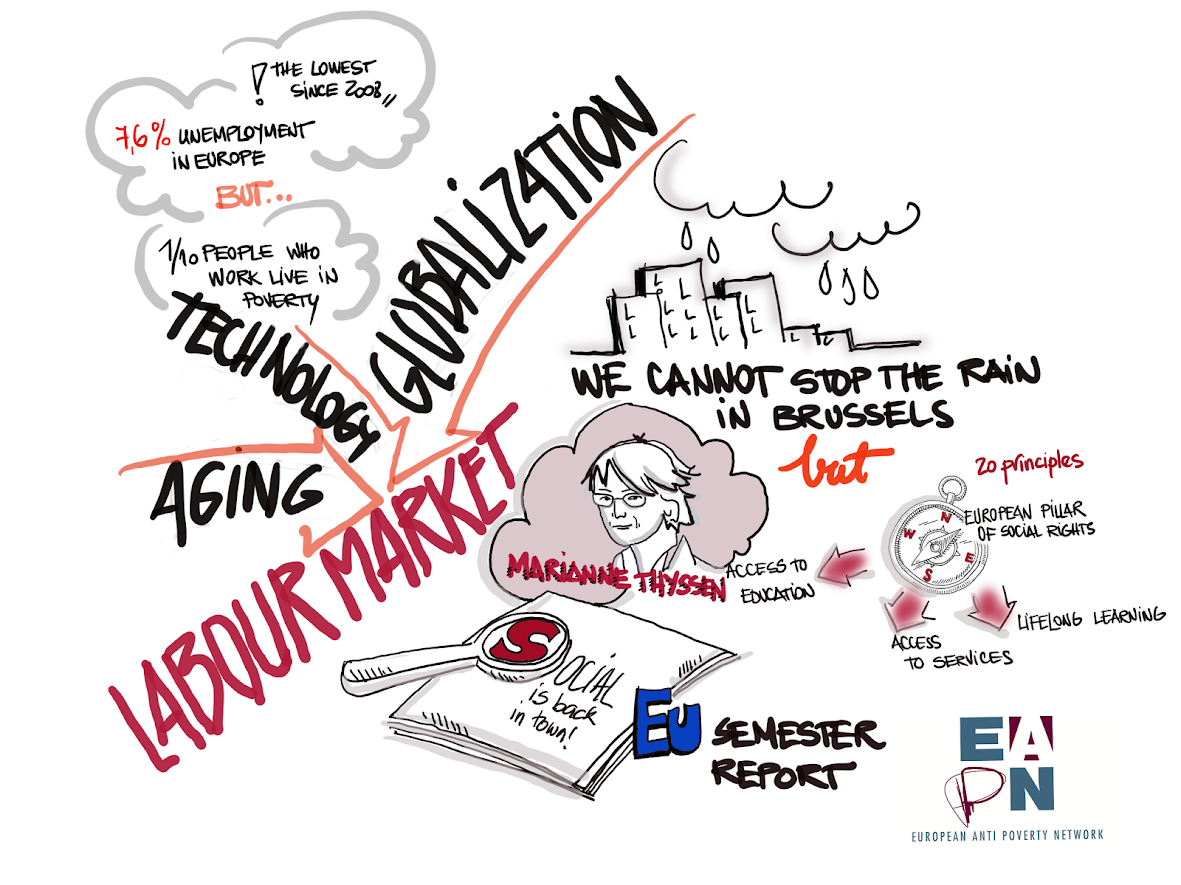 ! THE LOWEST
SINCE 2008,,
7,6% UNEMPLOYMENT
IN EUROPE
BUT...
1/10 PEOPLE WHO
WORK LIVE IN
POVERTY
TECHNOLOGY
GLOBALIZATION
AGING
LABOUR MARKET
WE CANNOT STOP THE RAIN
IN BRUSSELS
but
MARIANNE THYSSEN
20 principles
EUROPEAN PILLAR
OF SOCIAL RIGHTS
N
W
E
S
ACCESS TO
EDUCATION
ACCESS
TO SERVICES
LIFELONG LEARNING
SOCIAL
is back
in town!
EU SEMESTER
REPORT
EA
PN
EUROPEAN ANTI POVERTY NETWORK